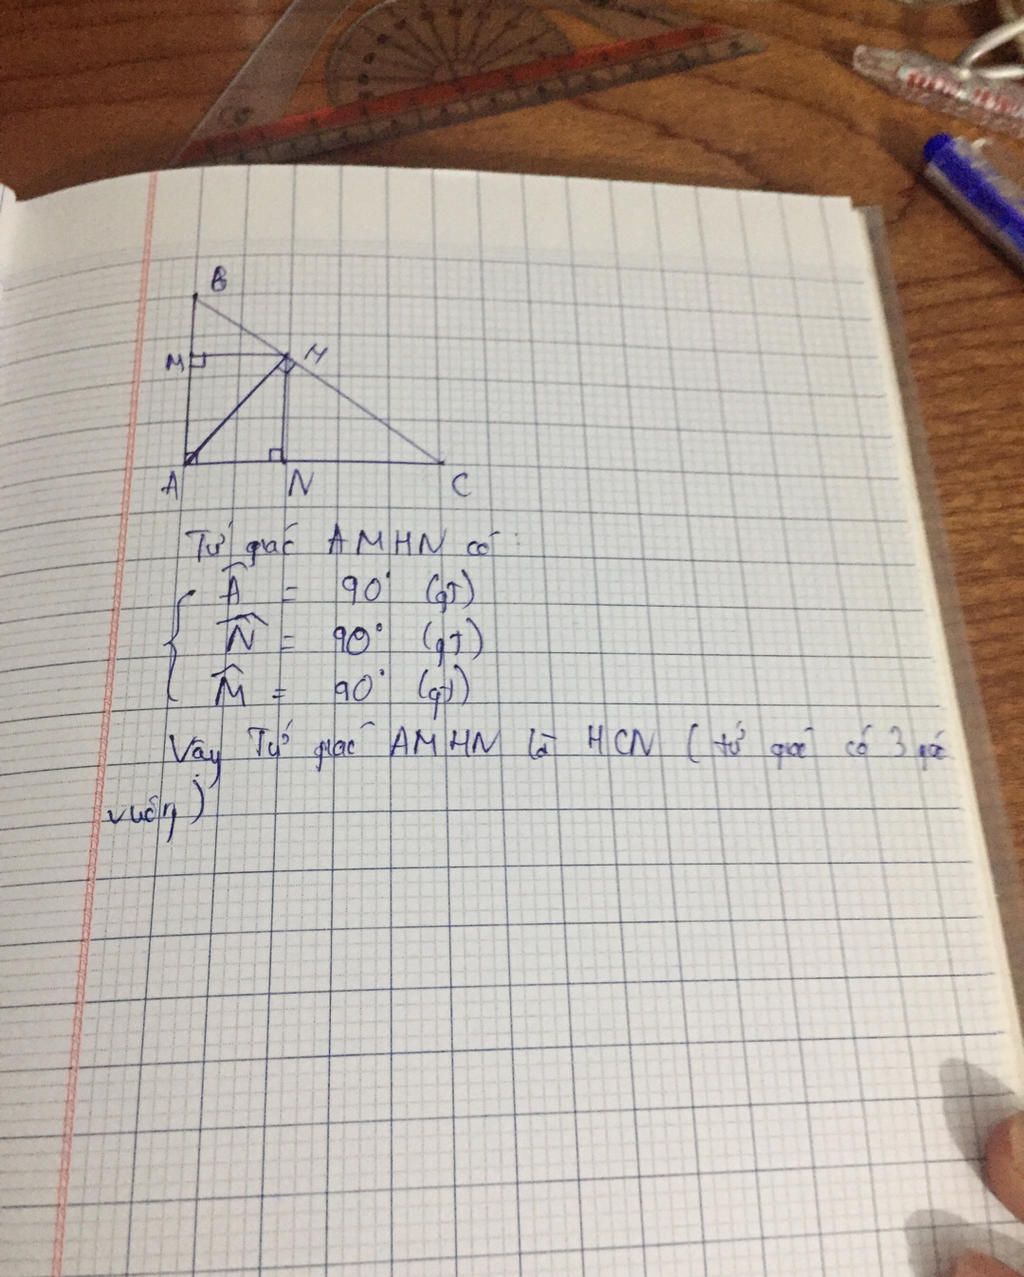 B
M
H
A
N
C
Tứ giác AMHN có:
Â = 90° (gt)
N̂ = 90° (gt)
M̂ = 90° (gt)
Vậy Tứ giác AMHN là HCN ( tứ giác có 3 góc
vuông)